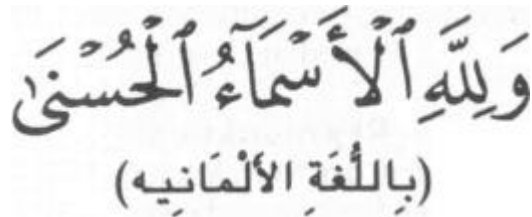 وَلِلَّهِ ٱلْأَسْمَآءُ ٱلْحُسْنَىٰ
(بِاللُّغَةِ الأَلْمَانِيه)